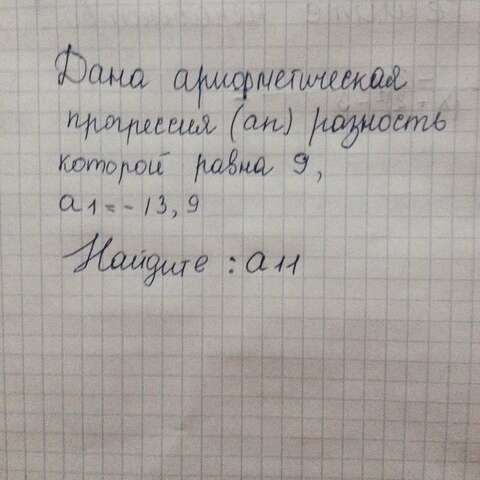 Дана арифметическая
прогрессия (an) разность
которой равна 9,
a1=-13,9
Найдите : a11